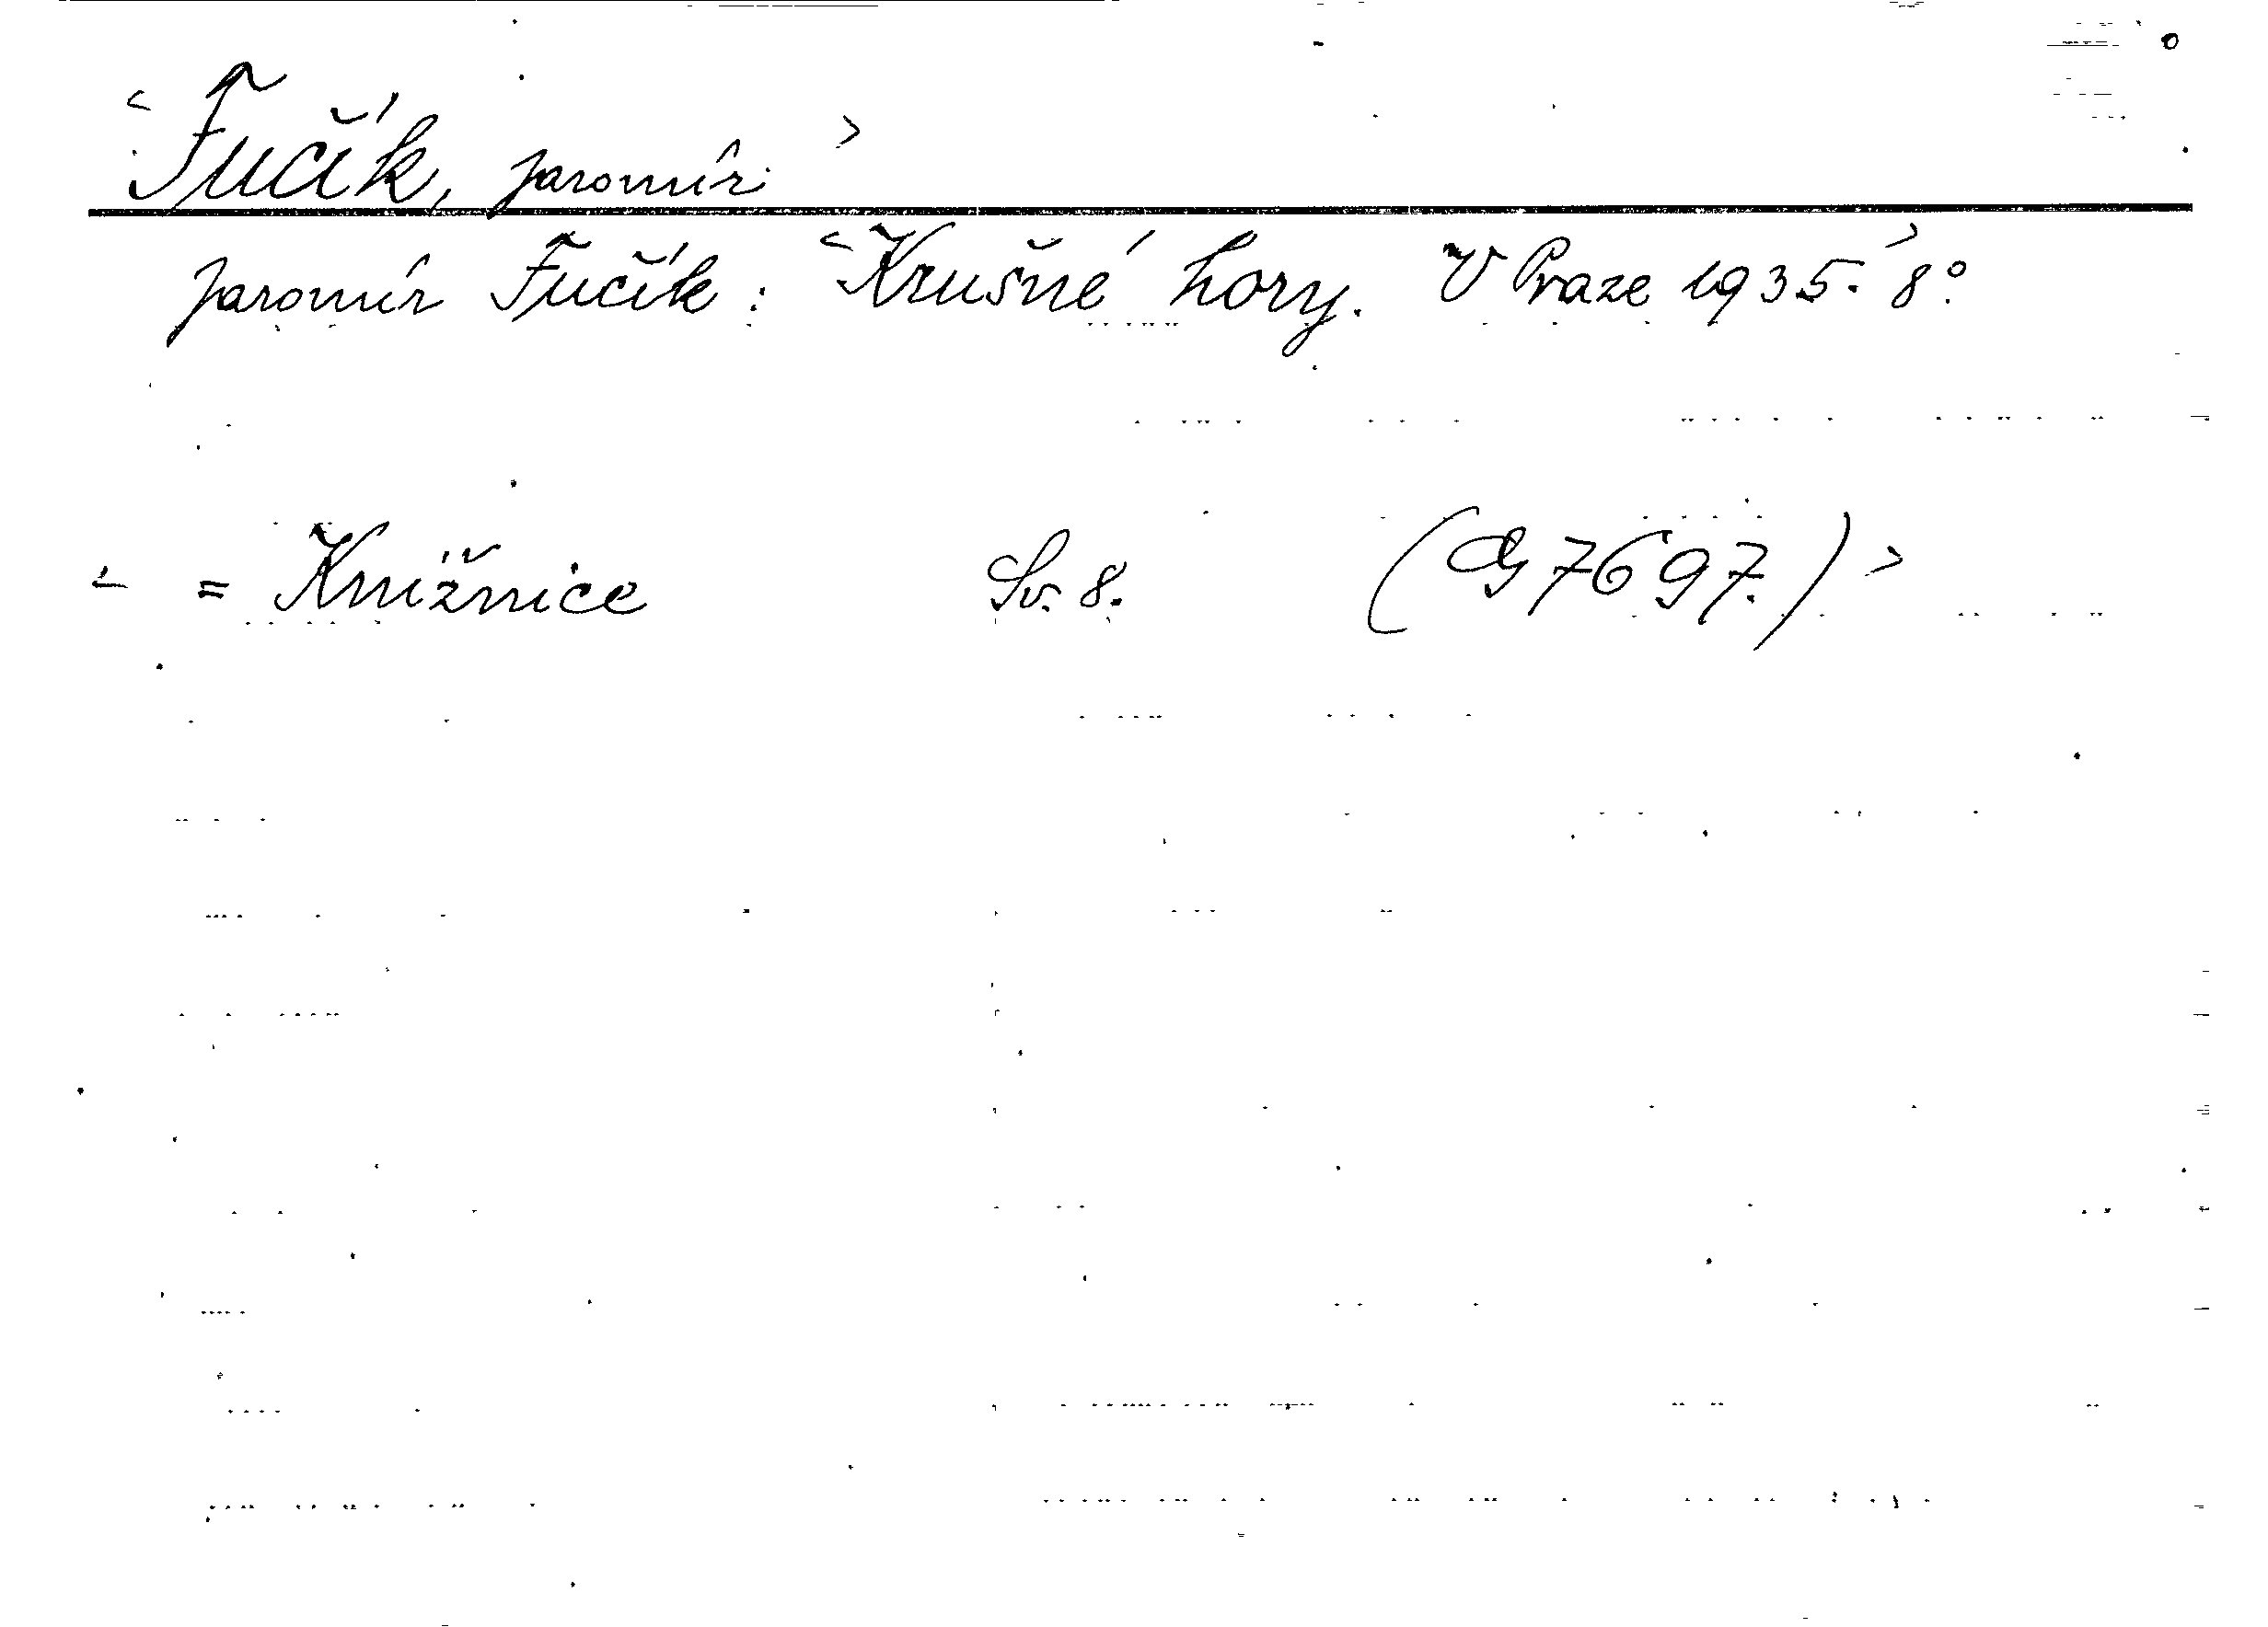 <Fučík, Jaromír>
Jaromír Fučík: <Krušné hory. V Praze 1935.> 8°.
< = Knižnice Sv. 8. (G 7697.) >